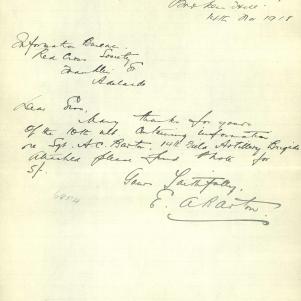 Broken Hill.
14th Nov 1918
Information Bureau.
Red Cross Society
Franklin St
Adelaide
Dear Sirs,
Many thanks for yours
Of the 10th ult containing information
re Sgt. A C. Barton. 14th Field Artillery Brigade
Attached please find Photo for
5/.
Yours Faithfully,
E. A Barton.